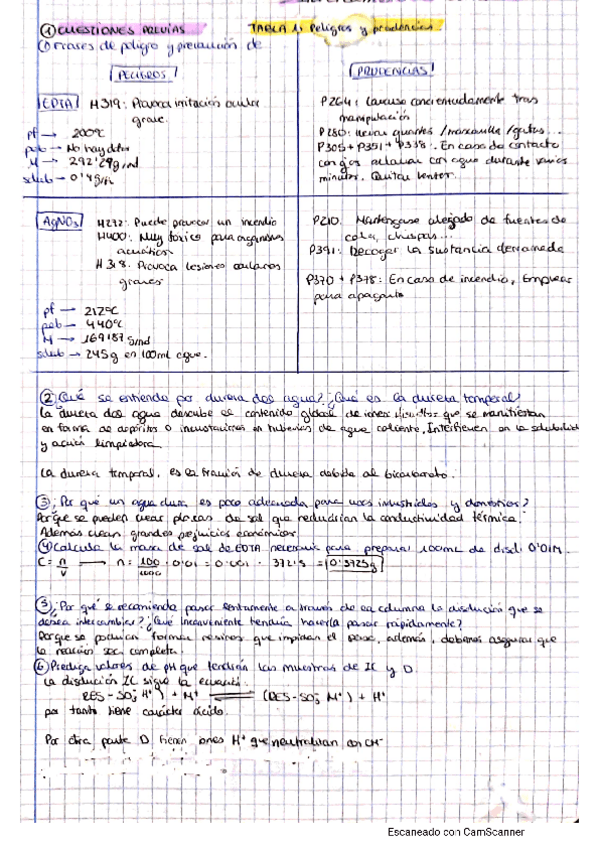 ① CUESTIONES PREVIAS
TABLA 1: Peligros y prudencias
① Frases de peligro y precaución de
PELIGROS
PRUDENCIAS
EDTA
H319: Provoca irritación ocular
grave.
pf → 200ºC
peb → No hay datos
M → 292'29 g/mol
solub → 0'4g/m
P264: Lavarse concienzudamente tras
manipulación
P280: llevar guantes / mascarilla / gafas...
P305 + P351 + P338. En caso de contacto
con ojos aclarar con agua durante varios
minutos. Quitar lentes.
AgNO3
H272: Puede provocar un incendio
H400: Muy tóxico para organismos
acuáticos
H318. Provoca lesiones oculares
graves
pf → 212ºC
peb → 440ºC
M → 169'87 g/mol
solub → 245g en 100ml agua.
P210. Manténgase alejado de fuentes de
calor, chispas...
P391: Recoger la sustancia derramada
P370 + P378: En caso de incendio, Emplear
para apagarlo
② ¿Qué se entiende por dureza del agua? ¿Qué es la dureza temporal?
La dureza del agua describe el contenido global de iones disueltos que se manifiestan
en forma de depósitos o incrustaciones en tuberías de agua caliente. Interfieren en la solubilidad
y acción limpiadora.
La dureza temporal, es la fracción de dureza debida al bicarbonato.
③ ¿Por qué un agua dura es poco adecuada para usos industriales y domésticos?
Porque se pueden crear placas de sal que reducirían la conductividad térmica.
Además crean grandes perjuicios económicos.
④ Calcula la masa de sal de EDTA necesaria para preparar 100mL de disol. 0'01M.
C = n/V → n = 100/1000 · 0'01 = 0'001 · 372'5 = 0'3725g
⑤ ¿Por qué se recomienda pasar lentamente a través de la columna la disolución que se
desea intercambiar? ¿Qué inconveniente tendría hacerla pasar rápidamente?
Porque se podrían formar que impidan el paso, además, debemos asegurar que
la reacción sea completa.
⑥ Predige valores de pH que tendrían las muestras de IC y D.
La disolución IC sigue la ecuación.
(RES-SO3⁻ H⁺) + M⁺ ⇌ (RES-SO3⁻ M⁺) + H⁺
por tanto tiene carácter ácido.
Por otra parte D tienen iones H⁺ que neutralizan con OH⁻
Escaneado con CamScanner